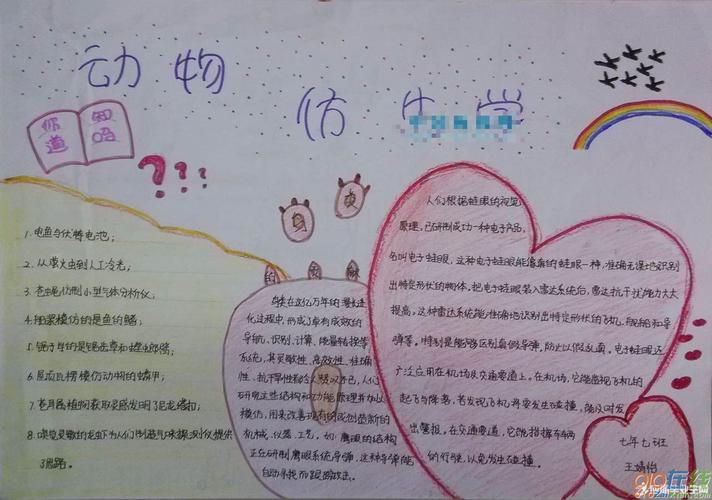 动物
仿生学
你知道吗
1.电鱼与伏特电池;
2.从萤火虫到人工冷光;
3.苍蝇仿制小型气体分析仪;
4.船桨模仿的是鱼的鳍;
5.锯子学的是锯齿草和螳螂臂;
6.屋顶瓦楞模仿动物的鳞甲;
7.苍耳属植物获取灵感发明了尼龙搭扣;
8.嗅觉灵敏的龙虾为人们制造气味探测仪提供
了思路。
自
然
的
在亿万年的漫长进
化过程中,形成了卓有成效的
导航、识别、计算、能量转换等
系统,其灵敏性、高效性、准确
性、抗干扰性都令人惊叹不已,人们
研究这些结构和功能原理并加以
模仿,用来改善现有的或创造新的
机械、仪器、工艺,如:鹰眼的结构
正在研制鹰眼系统导弹,这种导弹能
自动寻找而跟踪攻击。
人们根据蛙眼的视觉
原理,已研制成功一种电子产品,
名叫电子蛙眼,这种电子蛙眼能像真的蛙眼一样,准确无误地识别
出特定形状的物体,把电子蛙眼装入雷达系统后,雷达抗干扰能力大大
提高,这种雷达系统能准确地识别出特定形状的飞机、舰船和导
弹等。特别是能够区别真假导弹,防止以假乱真。电子蛙眼还
广泛应用在机场及交通要道上。在机场,它能监视飞机的
起飞与降落,若发现飞机将要发生碰撞,能及时发
出警报。在交通要道,它能指挥车辆
的行驶,以免发生碰撞。
七年七班
王
910在线